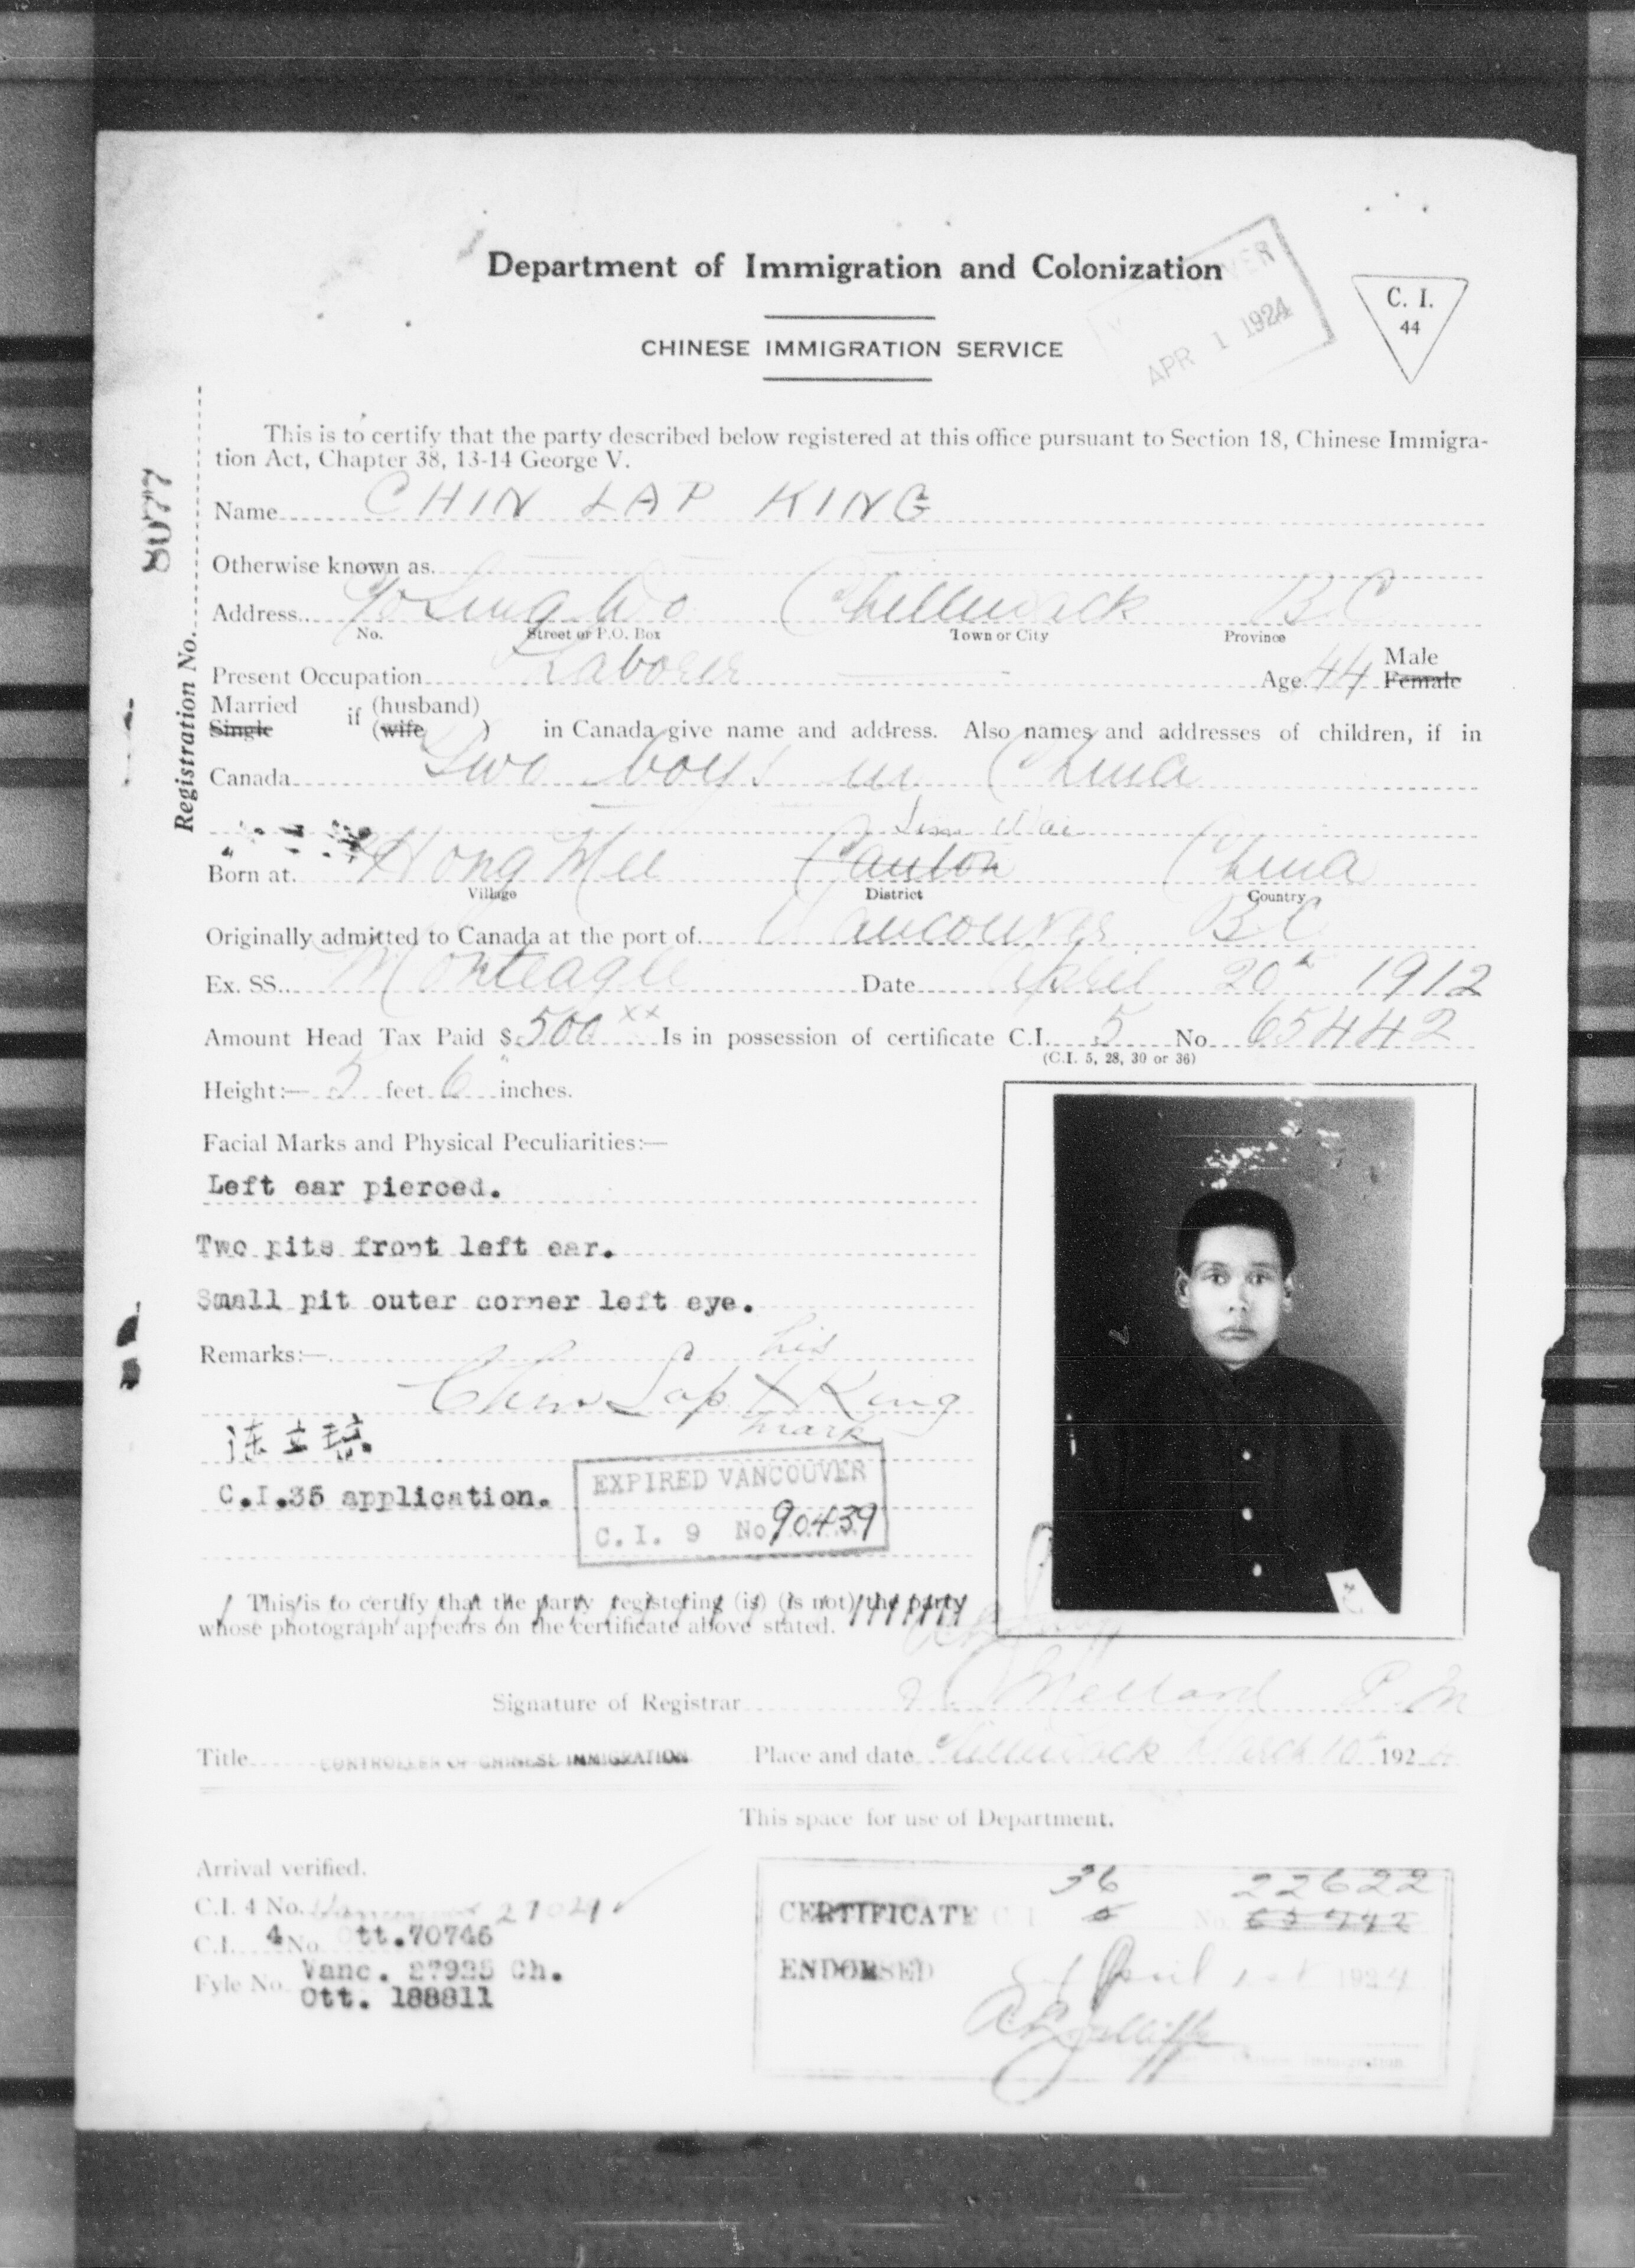 Department of Immigration and Colonization
APR 1 1924
C. I.
44
CHINESE IMMIGRATION SERVICE
This is to certify that the party described below registered at this office pursuant to Section 18, Chinese Immigra-
tion Act, Chapter 38, 13-14 George V.
Registration No. 8077
Name CHIN LAP KING
Otherwise known as
Address c/o Sing Wo Chilliwack B.C
No. Street or P.O. Box Town or City Province
Present Occupation Laborer Age 44 Male Female
Married Single if (husband) (wife ) in Canada give name and address. Also names and addresses of children, if in
Canada Two boys in China
Sun Wai
Born at Hong Mee Canton China
Village District Country
Originally admitted to Canada at the port of Vancouver B.C
Ex. SS. Monteagle Date April 20th 1912
Amount Head Tax Paid $ 500 xx Is in possession of certificate C.I. 5 No 65442
(C.I. 5, 28, 30 or 36)
Height:— 5 feet 6 inches.
Facial Marks and Physical Peculiarities:—
Left ear pierced.
Two pits front left ear.
Small pit outer corner left eye.
Remarks:—
his
Chin Lap X King
mark
C.I.35 application.
EXPIRED VANCOUVER
C. I. 9 No 90439
This is to certify that the party registering (is) (is not) the party
whose photograph appears on the certificate above stated.
Signature of Registrar Mellard P.M
Title CONTROLLER OF CHINESE IMMIGRATION Place and date Chilliwack March 10th 192
This space for use of Department.
Arrival verified.
C.I. 4 No.
C.I. 4 No. Ott.70746
Fyle No. Vanc. 27925 Ch.
Ott. 188811
36 22622
CERTIFICATE C I 5 No.
ENDORSED April 1st 1924